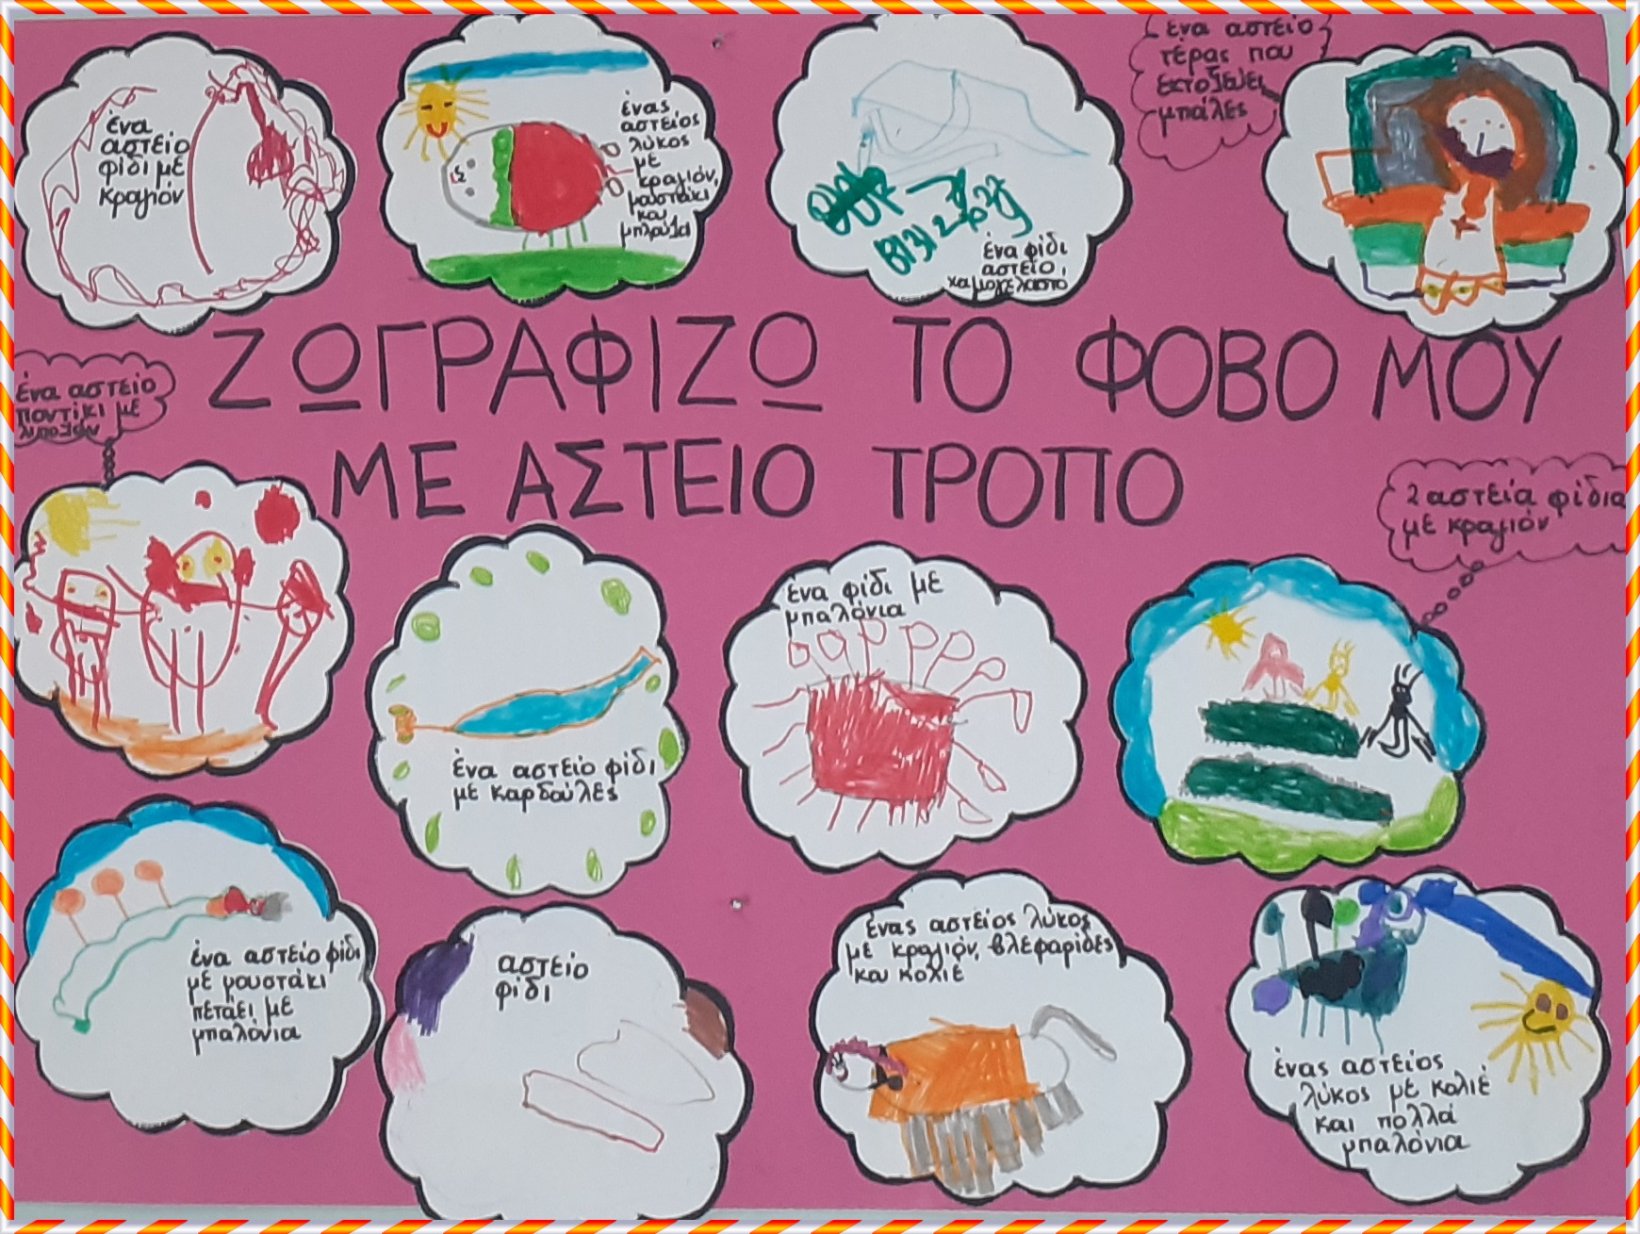 ένα
αστείο
φίδι με
κραγιόν
ένας
αστείος
λύκος
με
κραγιόν,
μουστάκι
και
μπλούζα
ένα φίδι
αστείο,
χαμογελαστό
ένα αστείο
τέρας που
εκτοξεύει
μπάλες
ΖΩΓΡΑΦΙΖΩ ΤΟ ΦΟΒΟ ΜΟΥ
ΜΕ ΑΣΤΕΙΟ ΤΡΟΠΟ
ένα αστείο
ποντίκι με
ένα αστείο φίδι
με καρδούλες
ένα φίδι με
μπαλόνια
2 αστεία φίδια
με κραγιόν
ένα αστείο φίδι
με μουστάκι
πετάει με
μπαλόνια
αστείο
φίδι
ένας αστείος λύκος
με κραγιόν, βλεφαρίδες
και κολιέ
ένας αστείος
λύκος με κολιέ
και πολλά
μπαλόνια